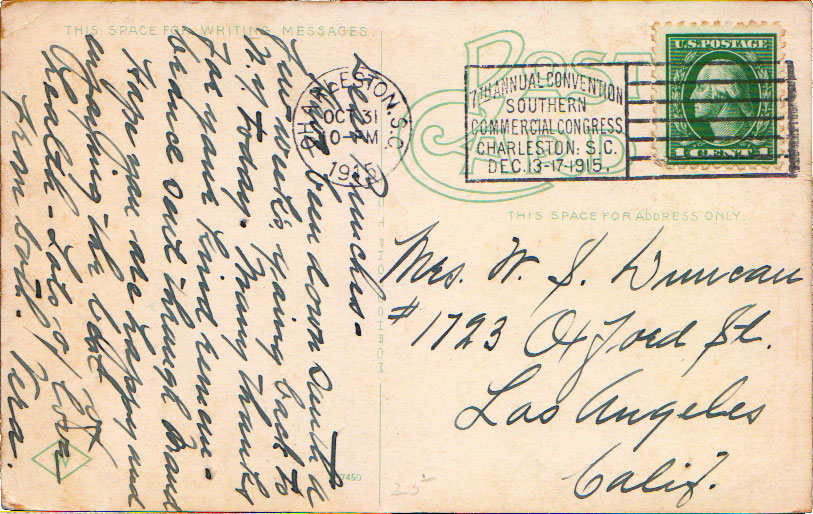 THIS SPACE FOR WRITING MESSAGES
Dear Munches-
Have been down South a
few weeks going back to
N.Y. today. Many thanks
for your kind remem-
brance sent through Maud
Hope you are happy and
enjoying the best
Health - Lots of love
from both. Vera.
CHARLESTON, S.C.
OCT 31
10-AM
1915
7TH ANNUAL CONVENTION
SOUTHERN
COMMERCIAL CONGRESS
CHARLESTON: S.C.
DEC. 13-17-1915.
U.S. POSTAGE
1 CENT 1
POST
CARD
THIS SPACE FOR ADDRESS ONLY.
Mrs. W. S. Duncan
#1723 Oxford St.
Los Angeles
Calif.
7450